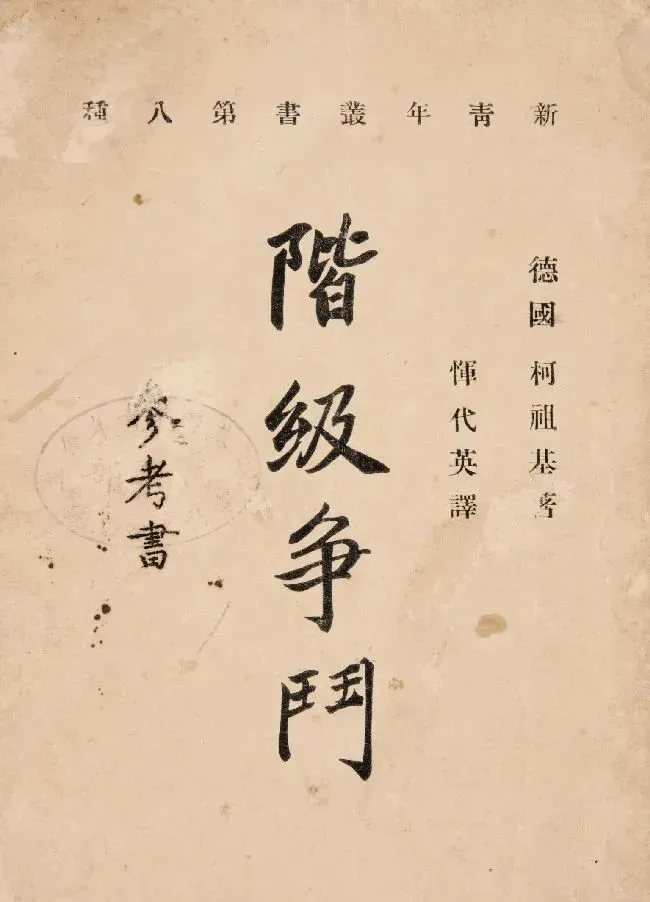 新青年叢書第八種
德國 柯祖基著
惲代英譯
階級争鬥
參考書